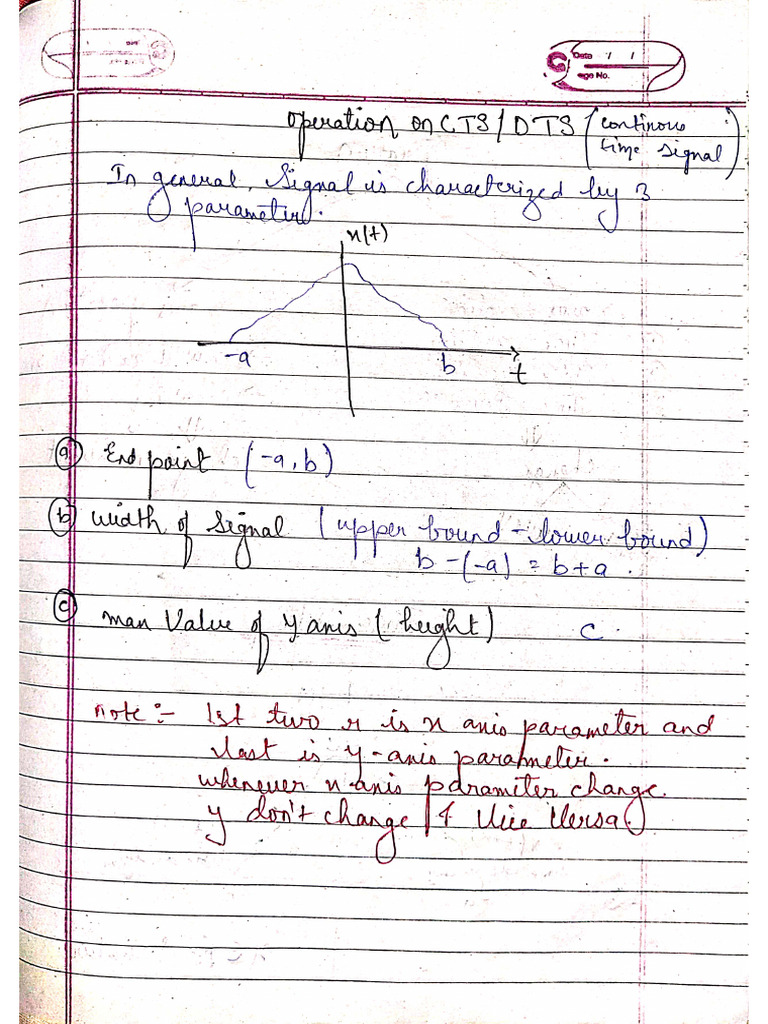 Date / /
age No.
Operation on CTS/DTS (continous time signal)
In general, Signal is characterized by 3
parameter.
x(t)
-a b
t
(a) End point (-a, b)
(b) width of Signal (upper bound - lower bound)
b-(-a) = b+a.
(c) max Value of y axis (height) c.
note:- 1st two r is x axis parameter and
last is y-axis parameter.
whenever x-axis parameter change.
y don't change & Vice Versa